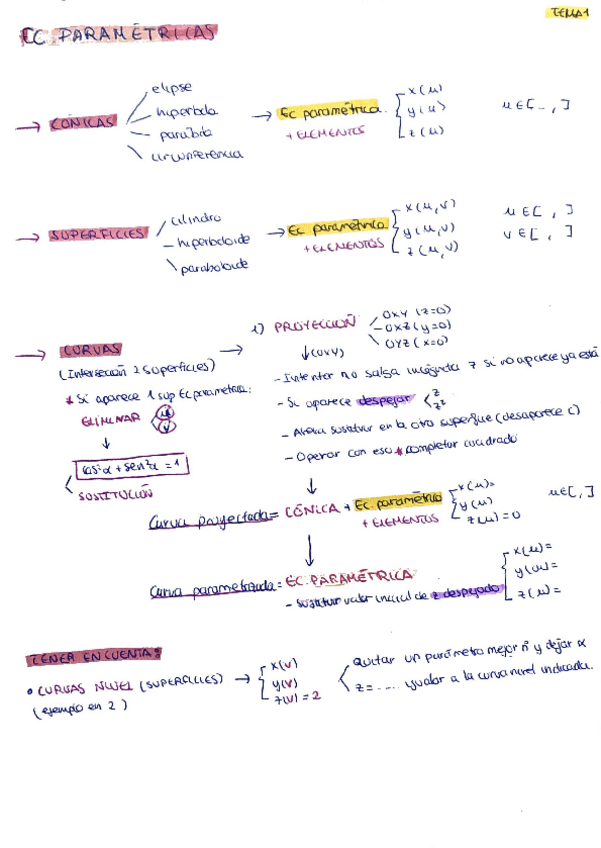 TEMA 1
EC. PARAMÉTRICAS
→ CÓNICAS
elipse
hiperbola
parábola
circunferencia
→ Ec paramétrica
+ ELEMENTOS
x(u)
y(u)
z(u)
u ∈ [ , ]
→ SUPERFICIES
cilindro
hiperboloide
paraboloide
→ Ec paramétrica
+ ELEMENTOS
x(u,v)
y(u,v)
z(u,v)
u ∈ [ , ]
v ∈ [ , ]
→ CURVAS →
(Intersección 2 superficies)
* Si aparece 1 sup Ec parametrica:
ELIMINAR u v
↓
cos²α + sen²α = 1
SUSTITUCIÓN
1) PROYECCIÓN
OXY (z=0)
OXZ (y=0)
OYZ (x=0)
↓ (OXY)
- Intenter no salga incógnita z si no aparece ya está
- Si aparece despejar
z
z²
- Ahora sustituir en la otra superficie (desaparece z)
- Operar con eso * completar cuadrado
↓
Curva proyectada = CÓNICA + Ec. paramétrica
+ ELEMENTOS
x(u)=
y(u)
z(u)=0
u ∈ [ , ]
↓
Curva parametrizada = EC. PARAMÉTRICA
- sustituir valor inicial de z despejado
x(u)=
y(u)=
z(u)=
TENER EN CUENTA:
• CURVAS NIVEL (SUPERFICIES) →
(ejemplo en 2)
x(v)
y(v)
z(v) = 2
Quitar un parámetro mejor nº y dejar α
z=.... igualar a la curva nivel indicada.